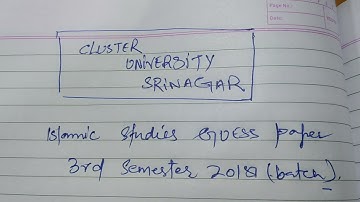 CLUSTER
UNIVERSITY
SRINAGAR
Islamic Studies GUESS paper
3rd Semester 2018 (batch).